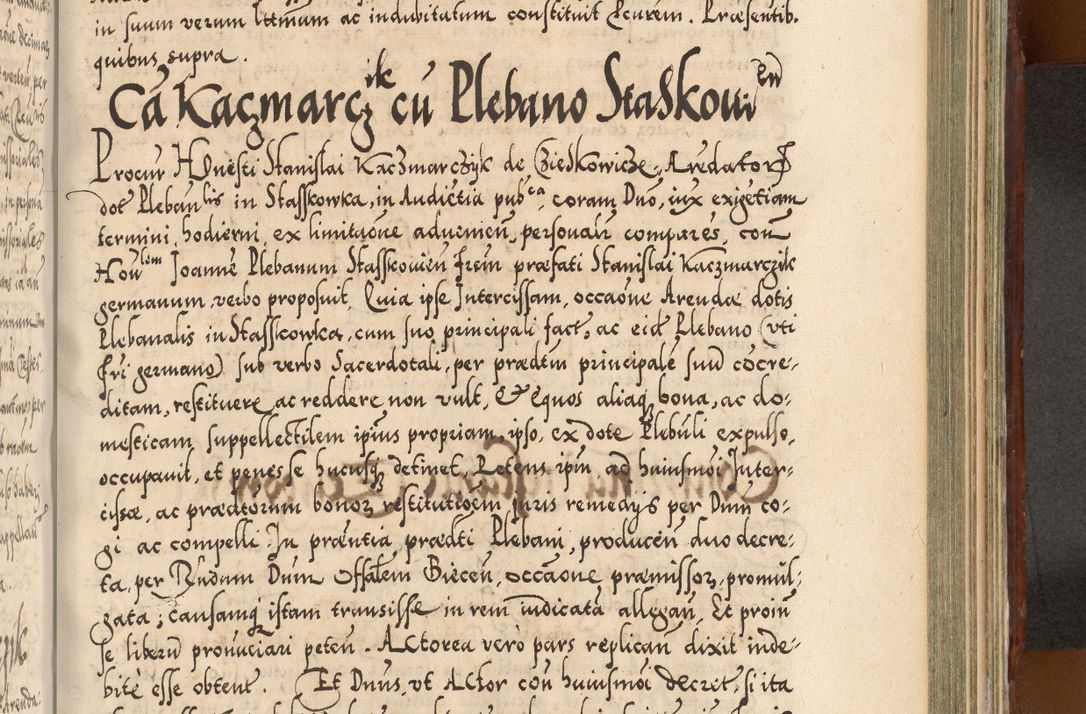 in suum verum lttmum ac indubitatum constituit Pcurem. Præsentib.
quibus supra.
Cā Kaczmarczik cū Plebano Staskouien
Procur Honesti Stanislai Kaczmarczyk de Czieskowicze, Aredatoris
dot Pleban̄lis in Stasskowka, in Audiētia pub^ca, coram Dno, iux exigētiam
termini, hodierni, ex limitaōne aduenien, personalr comparēs, con
Hon^lem Joannē Plebanum Stasskouien frēm præfati Stanislai Kaczmarczik
germanum, verbo proposuit, Quia ipse Intercissam, occaōne Arendæ dotis
Plebanalis in Stasskowka, cum suo principali fact, ac eid Plebano (vti
fri germano) sub verbo Sacerdotali, per prædtm principale suū cōcre-
ditam, restituere ac reddere non vult, Et Equos aliaq bona, ac do-
mesticam suppellectilem ipius propriam, ipso, ex dote Plebāli expulso,
occupauit, et penes se hucusq detinet, Petens ipm ad huiusmōi Inter-
cissæ, ac prædtorum bonor restitutioēm juris remedijs per Dnm co-
gi ac compelli. In præntia prædti Plebani, producen duo decre-
ta, per Rndum Dnm Offalem Biecen, occāone præmissor, promul-
gata; causamq istam transisse in rem iudicatā allegan, Et proin
se liberū pronūciari peten. Actorea verò pars replican dixit inde-
bitè esse obtent. Et Dnus, vt Actor con huiusmōi decret, si ita